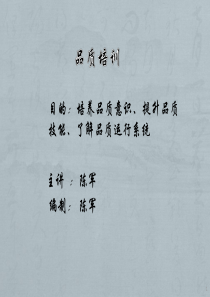 品质培训
目的：培养品质意识、提升品质
技能、了解品质运行系统
主讲：陈军
编制：陈军